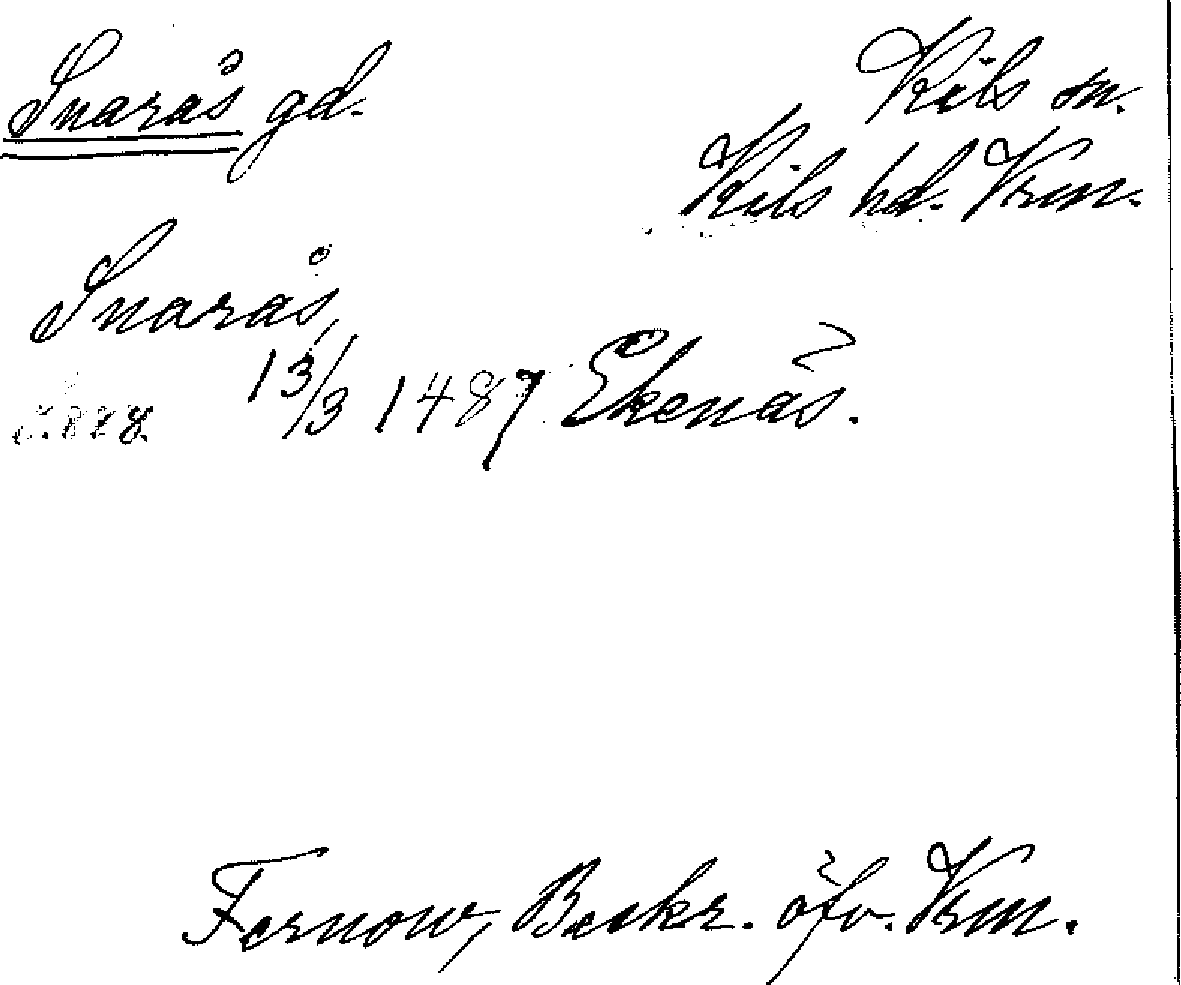 Snarås gd.
Kils sn.
Kils hd. Vrm.
Snarås,
13/3 1487 Ekenäs.
s. 888.
Fernow, Beskr. öfv. Vrm.